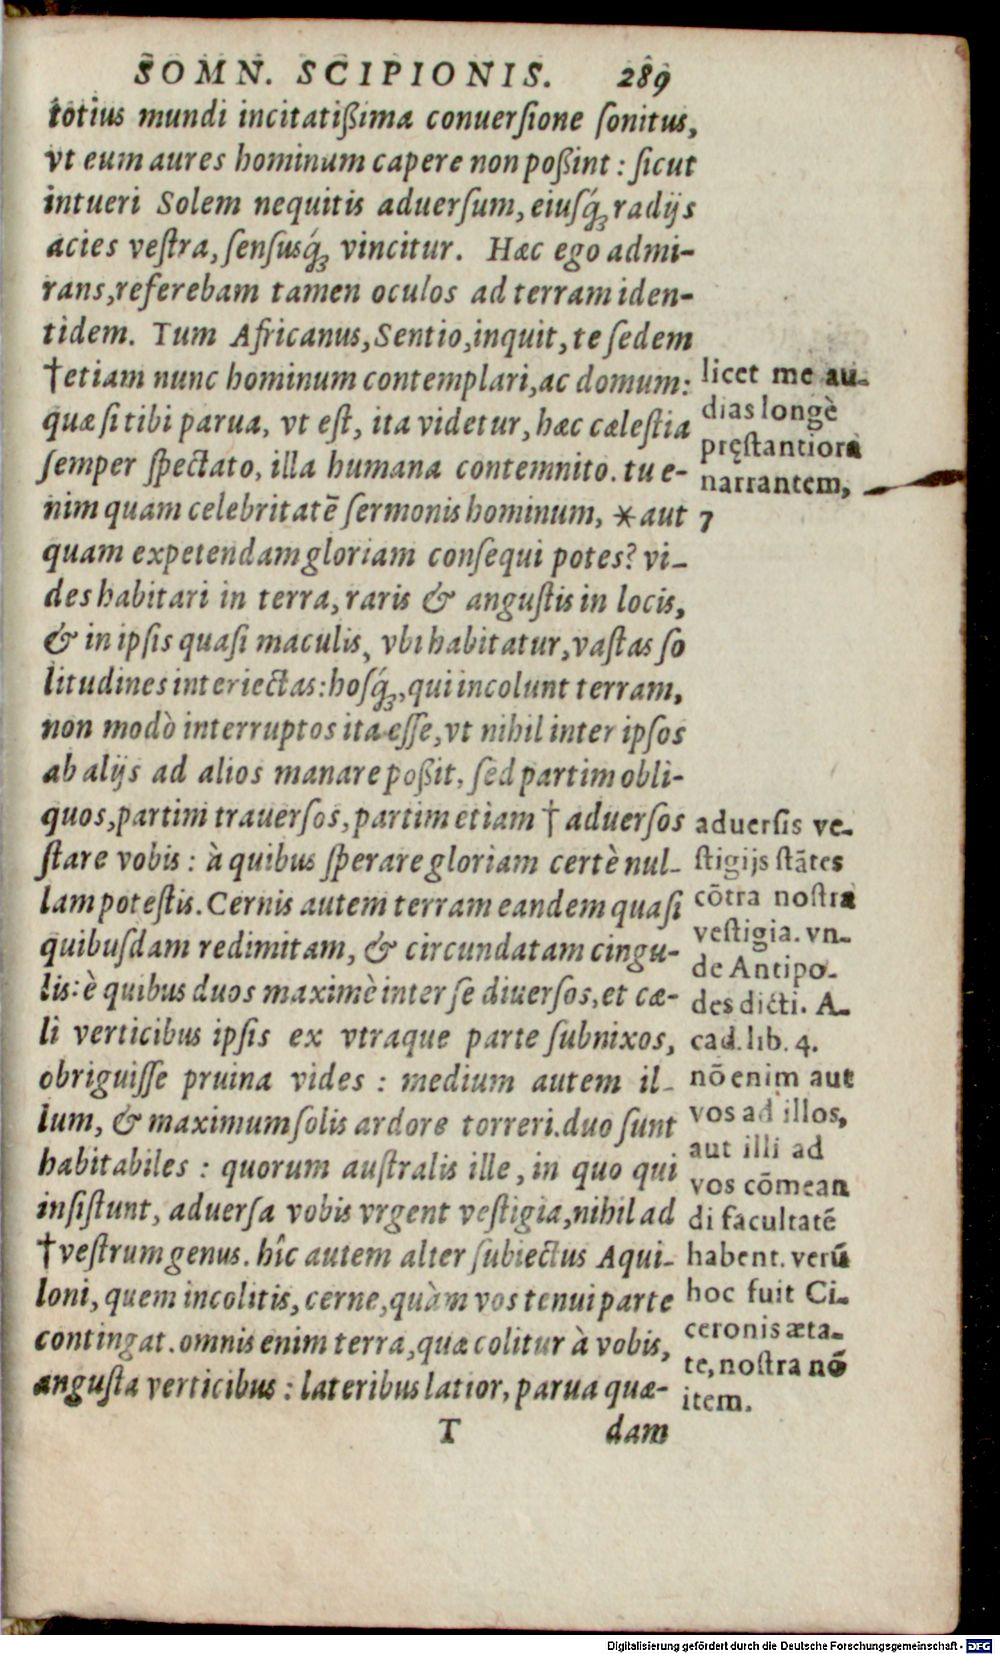 SOMN. SCIPIONIS. 289
totius mundi incitatißima conuerſione ſonitus,
vt eum aures hominum capere non poßint : ſicut
intueri Solem nequitis aduerſum, eiuſq́ꝫ radijs
acies veſtra, ſenſusq́ꝫ vincitur. Hæc ego admi-
rans, referebam tamen oculos ad terram iden-
tidem. Tum Africanus, Sentio, inquit, te ſedem
†etiam nunc hominum contemplari, ac domum:
quæ ſi tibi parua, vt eſt, ita videtur, hæc cæleſtia
ſemper ſpectato, illa humana contemnito. tu e-
nim quam celebritatē ſermonis hominum, * aut
quam expetendam gloriam conſequi potes? vi-
des habitari in terra, raris & anguſtis in locis,
& in ipſis quaſi maculis, vbi habitatur, vaſtas ſo
litudines interiectas: hoſq́ꝫ, qui incolunt terram,
non modò interruptos ita eſſe, vt nihil inter ipſos
ab alijs ad alios manare poßit, ſed partim obli-
quos, partim trauerſos, partim etiam † aduerſos
ſtare vobis : à quibus ſperare gloriam certè nul-
lam poteſtis. Cernis autem terram eandem quaſi
quibuſdam redimitam, & circundatam cingu-
lis: è quibus duos maximè inter ſe diuerſos, et cæ-
li verticibus ipſis ex vtraque parte ſubnixos,
obriguiſſe pruina vides : medium autem il-
lum, & maximum ſolis ardore torreri. duo ſunt
habitabiles : quorum auſtralis ille, in quo qui
inſiſtunt, aduerſa vobis vrgent veſtigia, nihil ad
†veſtrum genus. hîc autem alter ſubiectus Aqui-
loni, quem incolitis, cerne, quàm vos tenui parte
contingat. omnis enim terra, quæ colitur à vobis,
anguſta verticibus : lateribus latior, parua quæ-
T dam
licet me au-
dias longè
pręſtantiora
narrantem,
7
aduerſis ve-
ſtigijs ſtātes
cōtra noſtra
veſtigia. vn-
de Antipo-
des dicti. A-
cad. lib. 4.
nō enim aut
vos ad illos,
aut illi ad
vos cōmean
di facultatē
habent. verū
hoc fuit Ci-
ceronis æta-
te, noſtra nō
item.
Digitalisierung gefördert durch die Deutsche Forschungsgemeinschaft - DFG